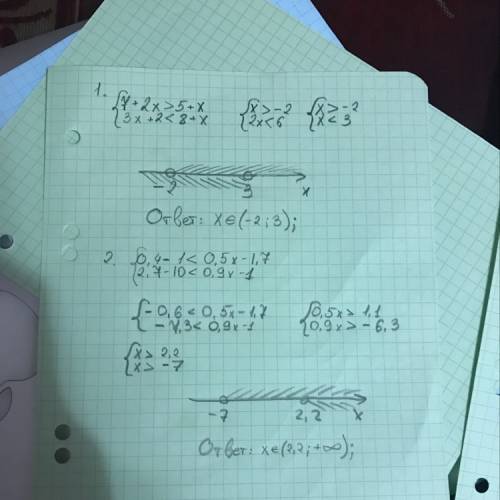 1.
{7+2x>5+x {x>-2 {x>-2
{3x+2<8+x {2x<6 {x<3
-2 3 x
Ответ: x∈(-2;3);
2. {0,4-1<0,5x-1,7
{2,7-10<0,9x-1
{-0,6<0,5x-1,7 {0,5x>1,1
{-7,3<0,9x-1 {0,9x>-6,3
{x>2,2
{x>-7
-7 2,2 x
Ответ: x∈(2,2;+∞);